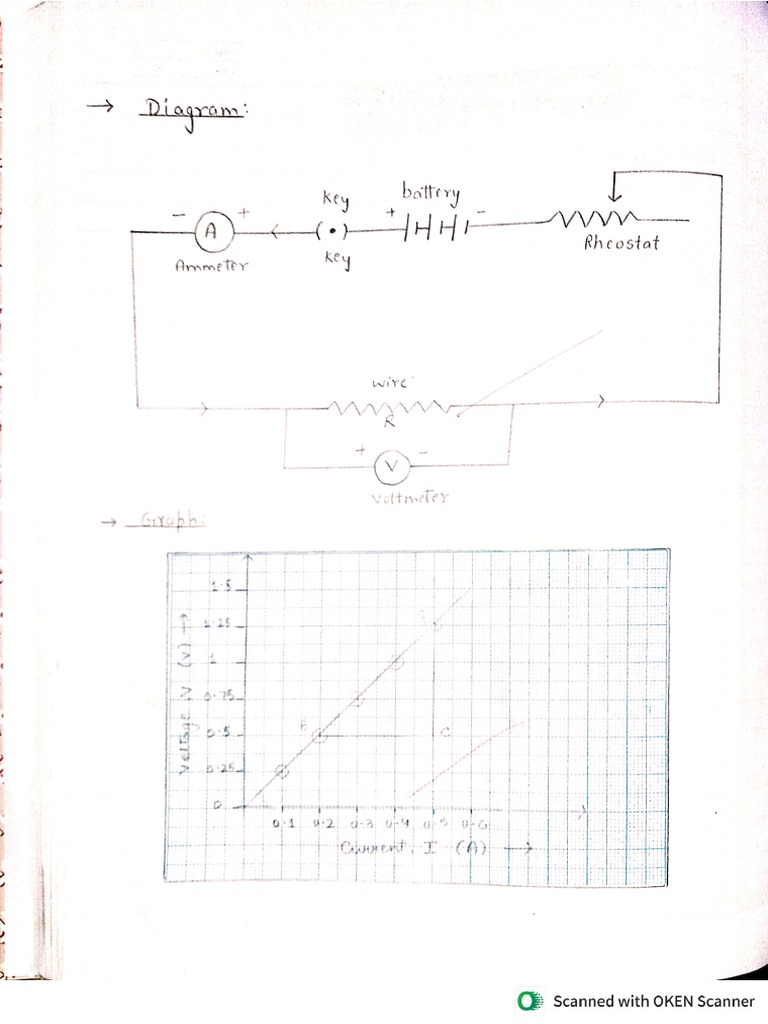 → Diagram:
key
battery
- A +
+ -
Ammeter
key
Rheostat
wire
R
+ V -
Voltmeter
→ Graph:
1.5
1.25
1
0.75
0.5
0.25
0
Voltage V (v) →
B
C
0.1 0.2 0.3 0.4 0.5 0.6
Current, I (A) →
Scanned with OKEN Scanner